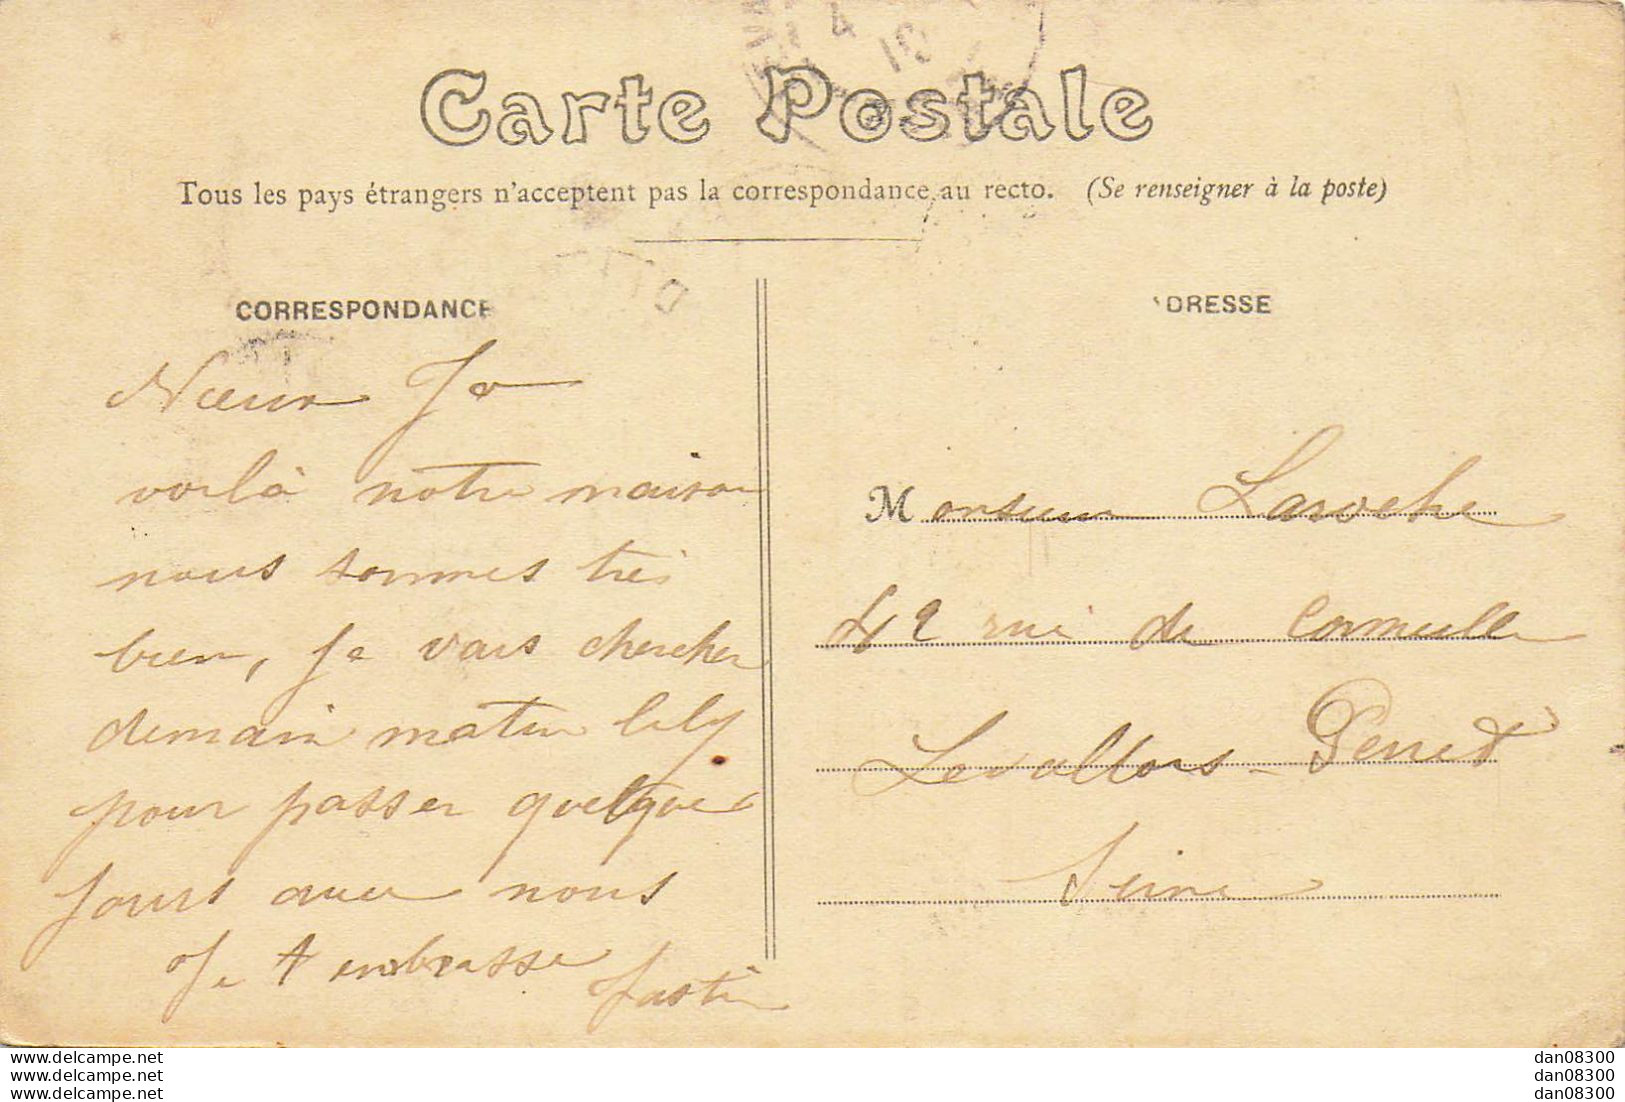 4
10
Carte Postale
Tous les pays étrangers n'acceptent pas la correspondance au recto. (Se renseigner à la poste)
CORRESPONDANCE
ADRESSE
voilà notre maison
nous sommes très
bien, je vais chercher
demain matin lily
pour passer quelque
jours avec nous
Je t embrasse
Monsieur Laroche
42 rue de Cormeille
Levallois-Perret
Seine
www.delcampe.net
www.delcampe.net
www.delcampe.net
dan08300
dan08300
dan08300